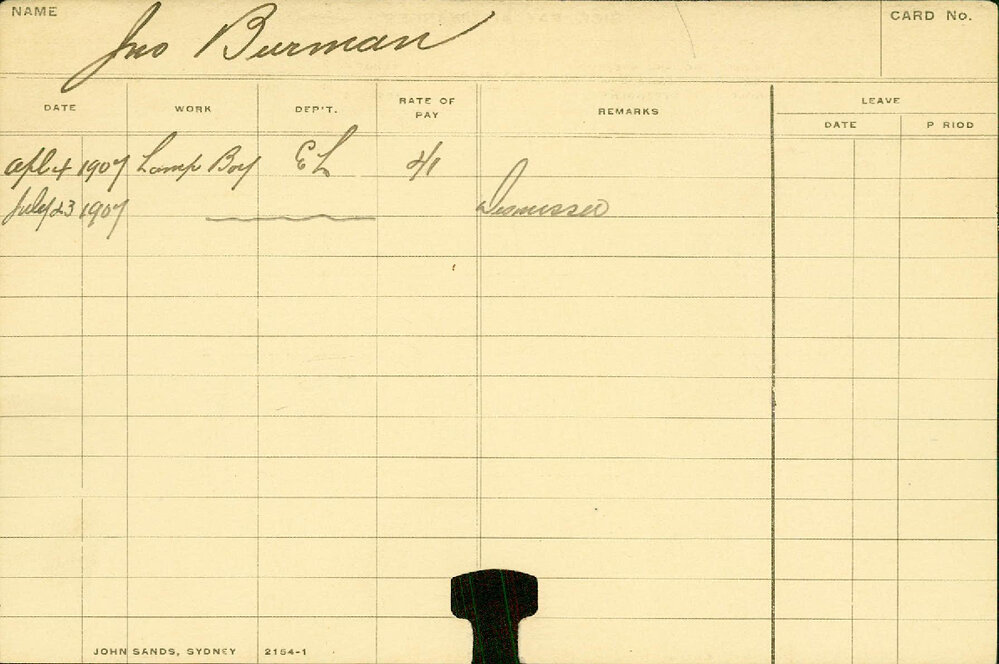 NAME
Jno Burman
CARD No.
DATE WORK DEP'T. RATE OF PAY REMARKS LEAVE
DATE P RIOD
Apl 4 1907 Lamp Boy EL
July 23 1907 Dismissed
JOHN SANDS, SYDNEY 2154-1